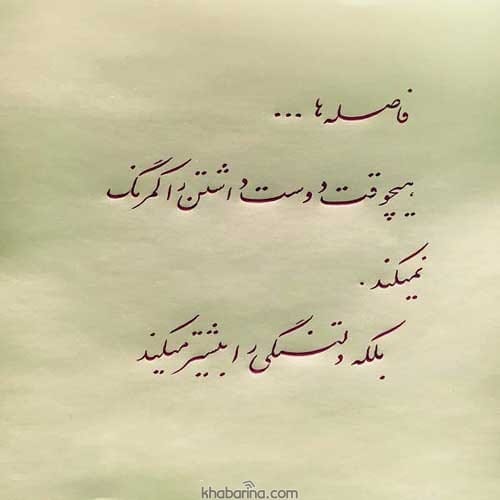 فاصله ها ...
هیچوقت دوست داشتن را کمرنگ
نمیکند .
بلکه دلتنگی را بیشتر میکند
khabarina.com